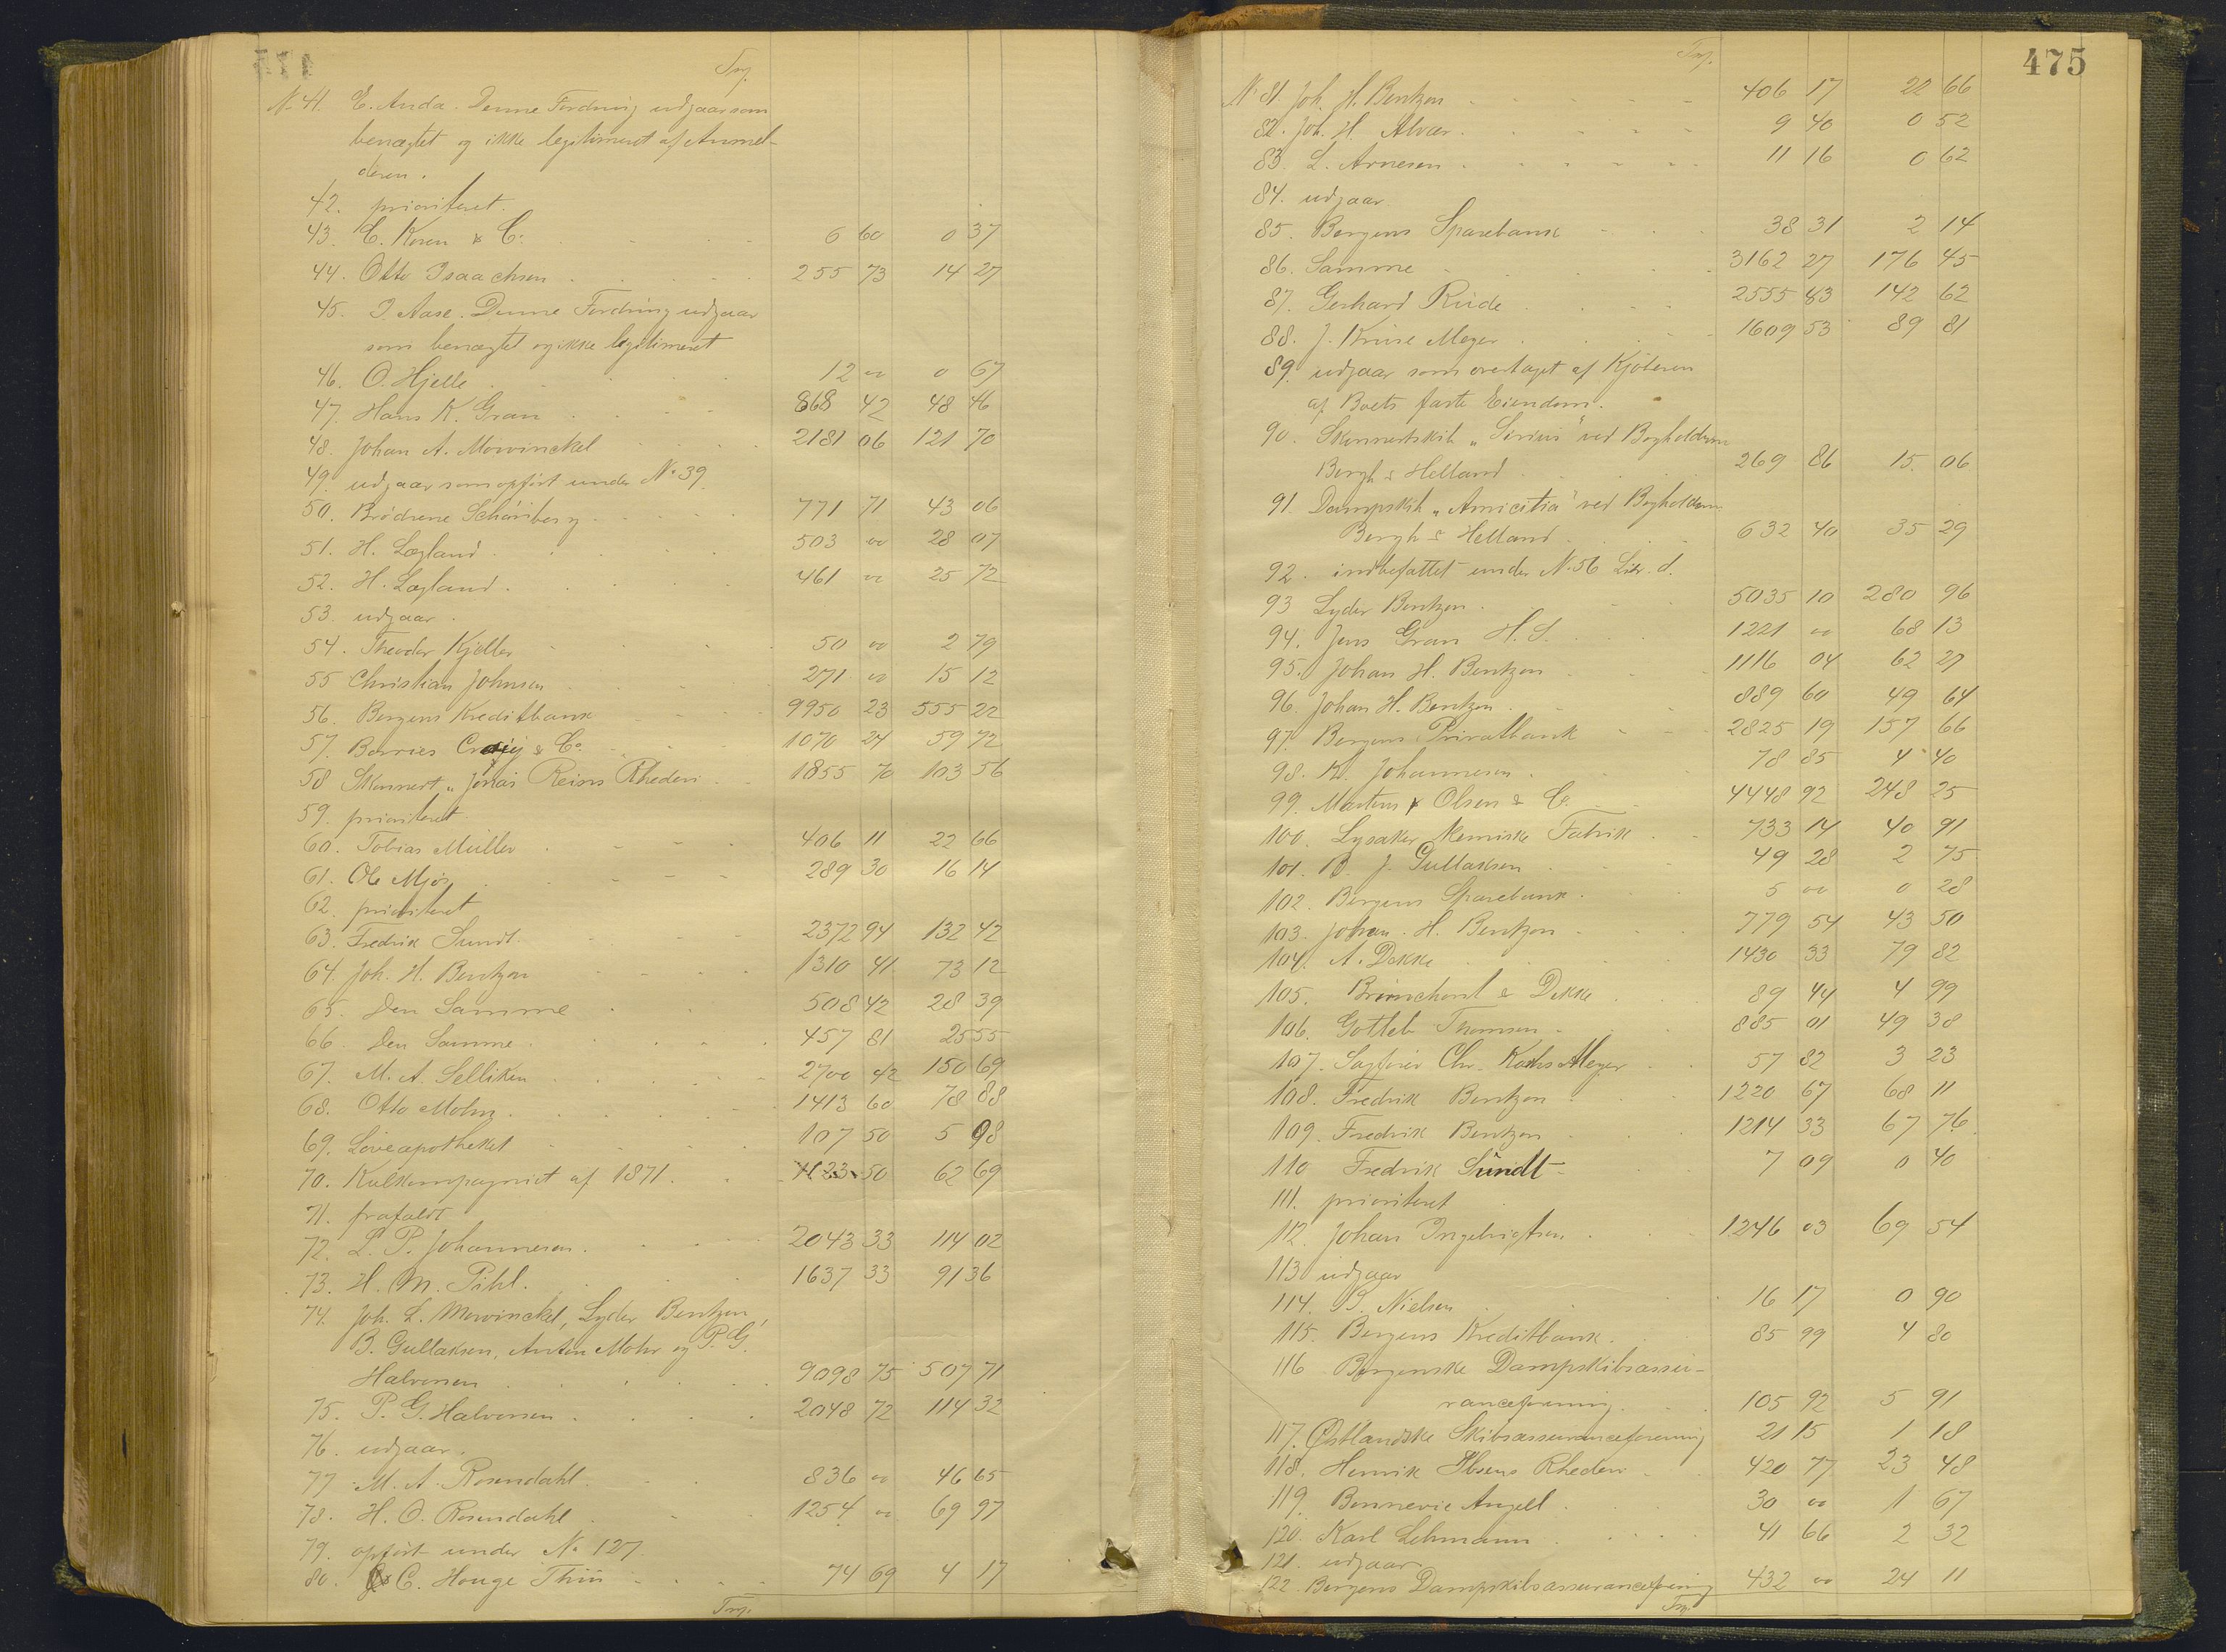 Trp.
No 41. E. Anda. Denne Fordring udgaar som
benægtet og ikke legitimeret af Anmel-
deren.
42. prioriteret.
43. C. Koren & Co. 6 60 0 37
44. Otto Isaachsen 255 73 14 27
45. I. Aase. Denne Fordring udgaar
som benægtet og ikke legitimeret
46. O. Hjelle 12 00 0 67
47. Hans K. Gran 868 42 48 46
48. Johan A. Mowinckel 2181 06 121 70
49. udgaar som opført under No 39.
50. Brødrene Schönberg 771 71 43 06
51. H. Lægland 503 00 28 07
52. H. Lægland 461 00 25 72
53. udgaar.
54. Theodor Kjeller 50 00 2 79
55 Christian Johnsen 271 00 15 12
56. Bergens Kreditbank 9950 23 555 22
57. Borries Craig & Co. 1070 24 59 72
58 Skonnert „Jonas Reins Rhederi 1855 70 103 56
59. prioriteret
60. Tobias Müller 406 11 22 66
61. Ole Mjøs 289 30 16 14
62. prioriteret
63. Fredrik Sundt. 2372 94 132 42
64. Joh. H. Bentzon 1310 41 73 12
65. Den Samme 508 42 28 39
66. Den Samme 457 81 25 55
67. M. A. Selliken 2700 42 150 69
68. Otto Mohn 1413 60 78 88
69. Løveapotheket 107 50 5 98
70. Kulkompagniet af 1871. 1123 50 62 69
71. frafaldt
72. L. P. Johannesen. 2043 33 114 02
73. H. M. Pihl. 1637 33 91 36
74. Joh. L. Mowinckel, Lyder Bentzon,
B. Gullaksen, Anton Mohr og P. G.
Halvorsen 9098 75 507 71
75. P. G. Halvorsen 2048 72 114 32
76. udgaar.
77. M. A. Rosendahl 836 00 46 65
78. H. O. Rosendahl 1254 00 69 97
79. opført under No 127.
80. C. Houge Thiis 74 69 4 17
Trp.
475
Trp.
No 81. Joh. H. Bentzon 406 17 22 66
82. Joh. H. Alver 9 40 0 52
83. L. Arnesen 11 16 0 62
84. udgaar
85. Bergens Sparebank 38 31 2 14
86. Samme 3162 27 176 45
87. Gerhard Riide 2555 83 142 62
88. J. Kruse Meyer 1609 53 89 81
89. udgaar som overtaget af Kjøberen
af Boets faste Eiendom.
90. Skonnertskib „Sirius" ved Bogholderne
Bergh & Helland 269 86 15 06
91. Dampskib „Amicitia" ved Bogholderne
Bergh & Helland 632 40 35 29
92. indbefattet under No 56 Litr. d.
93 Lyder Bentzon 5035 10 280 96
94. Jens Gran H. S. 1221 00 68 13
95. Johan H. Bentzon 1116 04 62 27
96. Johan H. Bentzon 889 60 49 64
97. Bergens Privatbank 2825 19 157 66
98. K. Johannesen 78 85 4 40
99. Martens & Olsen & Co. 4448 92 248 25
100. Lysaker kemiske Fabrik 733 14 40 91
101. B. J. Gullaksen 49 28 2 75
102. Bergens Sparebank 5 00 0 28
103. Johan. H. Bentzon 779 54 43 50
104. A. Dekke 1430 33 79 82
105. Brunchorst & Dekke 89 44 4 99
106. Gottleb Thomsen 885 01 49 38
107. Sagfører Chr. Kochs Meyer 57 82 3 23
108. Fredrik Bentzon 1220 67 68 11
109. Fredrik Bentzon 1214 33 67 76
110 Fredrik Sundt 7 09 0 40
111. prioriteret
112. Johan Ingebrigtsen 1246 03 69 54
113 udgaar
114. B. Nielsen 16 17 0 90
115. Bergens Kreditbank. 85 99 4 80
116 Bergenske Dampskibsassu-
ranceforening. 105 92 5 91
117. Østlandske Skibsassuranceforening 21 15 1 18
118. Henrik Ibsens Rhederi 420 77 23 48
119. Bonnevie Angell 30 00 1 67
120. Karl Lehmann 41 66 2 32
121. udgaar
122. Bergens Dampskibsassuranceforening 432 00 24 11
Trp.